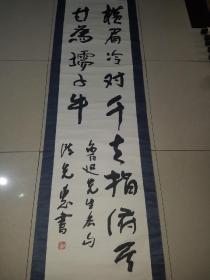 横眉冷对千夫指俯首
甘为孺子牛
鲁迅先生名句